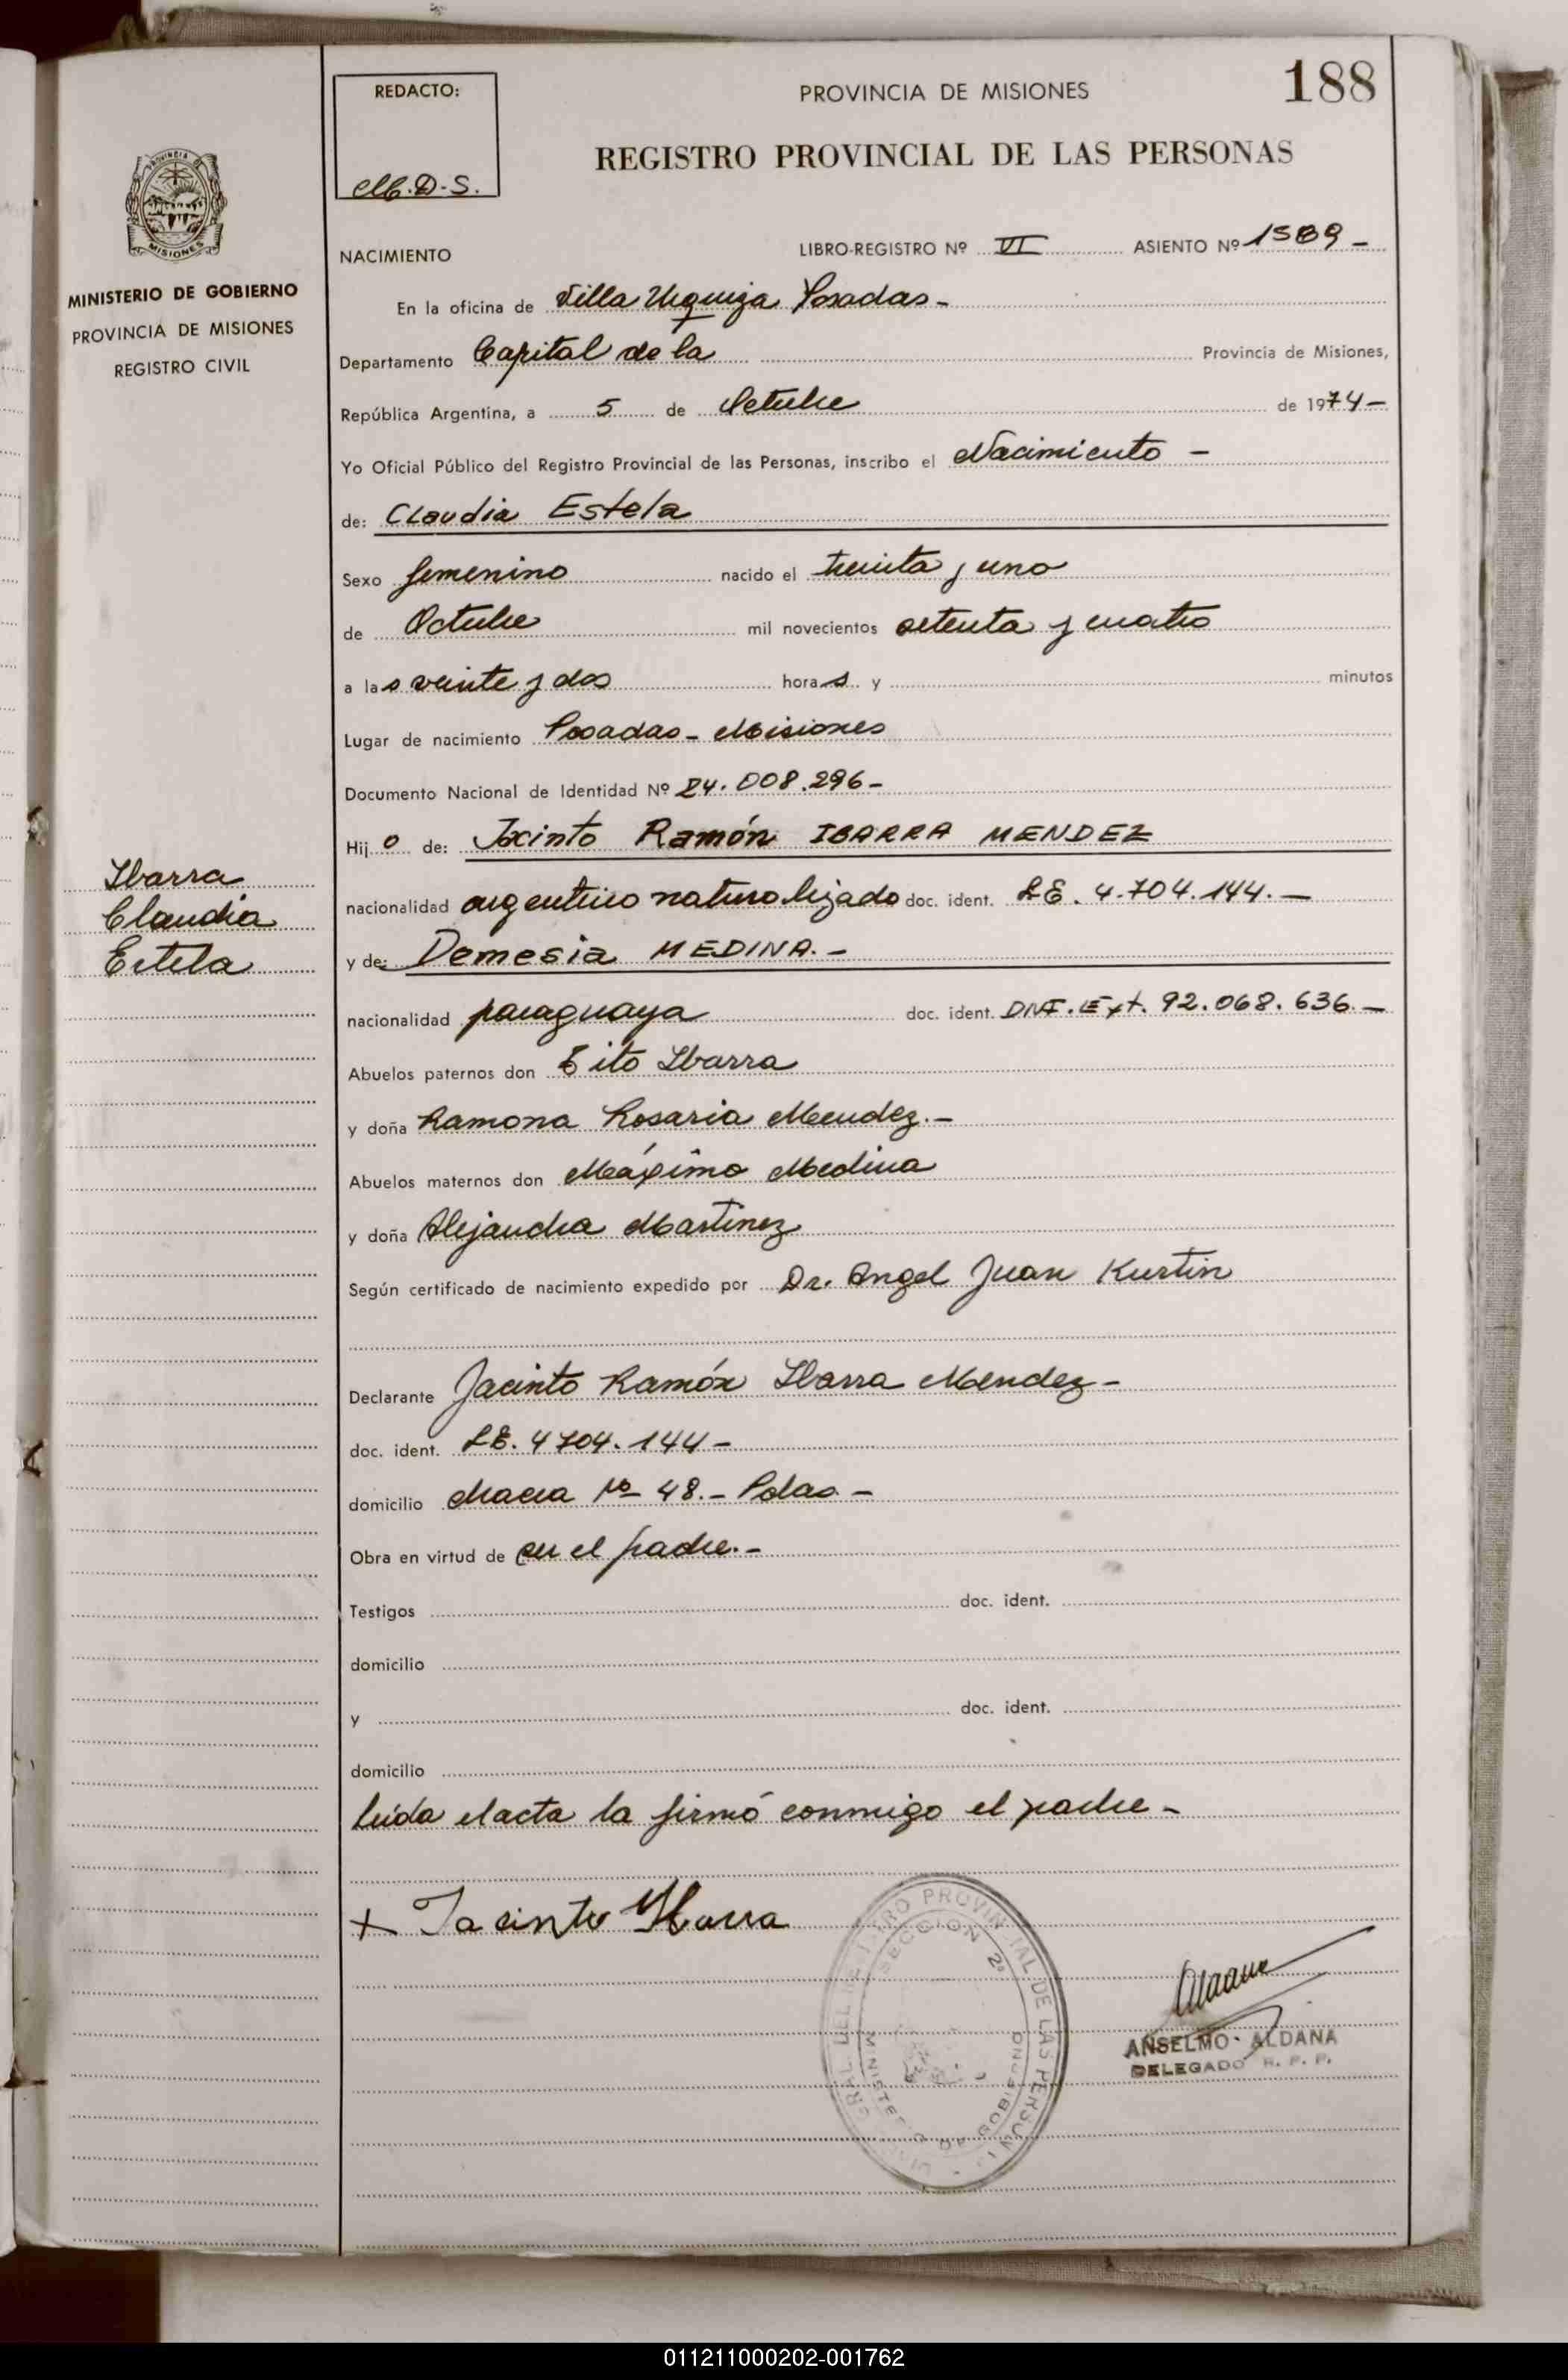 188
REDACTO:
M.D.S.
PROVINCIA DE MISIONES
REGISTRO PROVINCIAL DE LAS PERSONAS
PROVINCIA DE
MISIONES
MINISTERIO DE GOBIERNO
PROVINCIA DE MISIONES
REGISTRO CIVIL
NACIMIENTO LIBRO-REGISTRO Nº VI ASIENTO Nº 1589-
En la oficina de Villa Urquiza Posadas-
Departamento Capital de la Provincia de Misiones,
República Argentina, a 5 de Octubre de 1974-
Yo Oficial Público del Registro Provincial de las Personas, inscribo el Nacimiento -
de: Claudia Estela
Sexo femenino nacido el treinta y uno
de Octubre mil novecientos setenta y cuatro
a las veinte y dos horas y minutos
Lugar de nacimiento Posadas - Misiones
Documento Nacional de Identidad Nº 24.008.296-
Hijo de: Jacinto Ramón IBARRA MENDEZ
nacionalidad argentino naturalizado doc. ident. LE. 4.704.144.-
y de: Demesia MEDINA.-
nacionalidad paraguaya doc. ident. DNI.Ext. 92.068.636.-
Ibarra
Claudia
Estela
Abuelos paternos don Tito Ibarra
y doña Ramona Rosaria Mendez.-
Abuelos maternos don Máximo Medina
y doña Alejandra Martinez
Según certificado de nacimiento expedido por Dr. Angel Juan Kurtin
Declarante Jacinto Ramón Ibarra Mendez-
doc. ident. LE. 4704.144-
domicilio chacra No 48.- Pdas.-
Obra en virtud de ser el padre.-
Testigos doc. ident.
domicilio
y doc. ident.
domicilio
leída el acta la firmó conmigo el padre-
+ Jacinto Ibarra
SECCION 2ª
DE LAS PERSONAS
MINISTERIO DE GOBIERNO
Aldana
ANSELMO ALDANA
DELEGADO R. P. P.
011211000202-001762